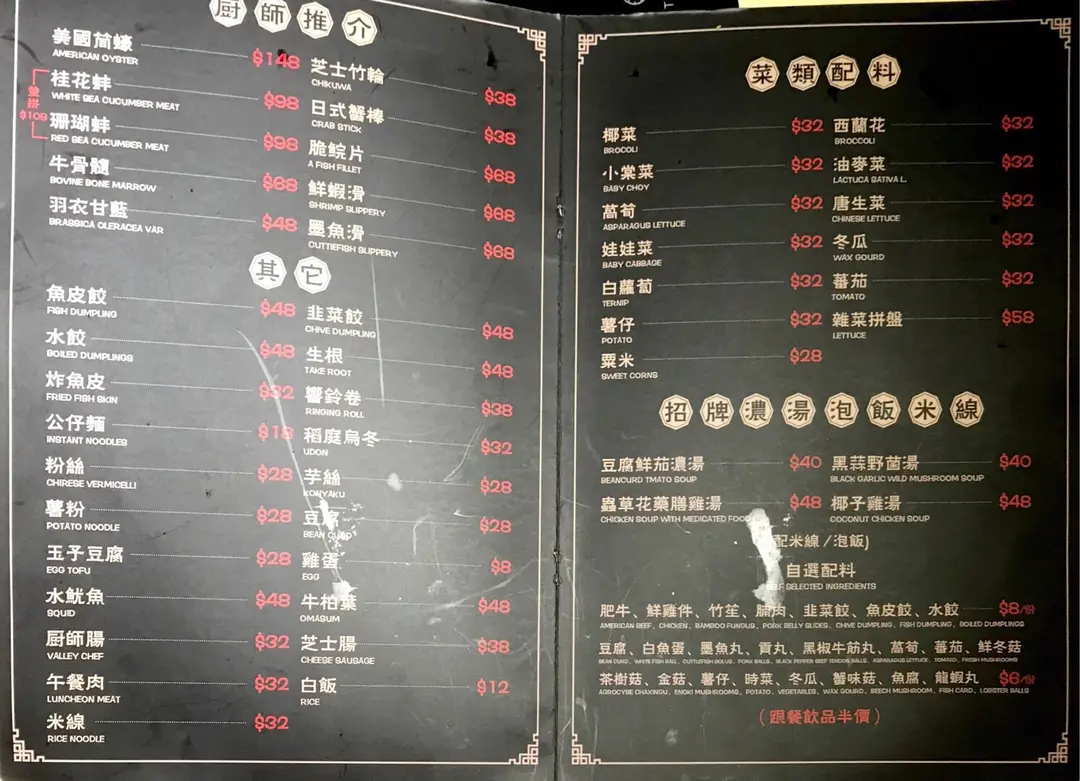 廚師推介
美國茼蠔 $148
AMERICAN OYSTER
桂花蚌 $98
WHITE SEA CUCUMBER MEAT
雙拼
$108
珊瑚蚌 $98
RED SEA CUCUMBER MEAT
牛骨髓 $68
BOVINE BONE MARROW
羽衣甘藍 $48
BRASSICA OLERACEA VAR
芝士竹輪 $38
CHIKUWA
日式蟹棒 $38
CRAB STICK
脆鯇片 $68
A FISH FILLET
鮮蝦滑 $68
SHRIMP SLIPPERY
墨魚滑 $68
CUTTIEFISH SLIPPERY
其它
魚皮餃 $48
FISH DUMPLING
水餃 $48
BOILED DUMPLINGS
炸魚皮 $32
FRIED FISH SKIN
公仔麵 $18
INSTANT NOODLES
粉絲 $28
CHIRESE VERMICELLI
薯粉 $28
POTATO NOODLE
玉子豆腐 $28
EGG TOFU
水魷魚 $48
SQUID
廚師腸 $32
VALLEY CHEF
午餐肉 $32
LUNCHEON MEAT
米線 $32
RICE NOODLE
韭菜餃 $48
CHIVE DUMPLING
生根 $48
TAKE ROOT
響鈴卷 $38
RINGING ROLL
稻庭烏冬 $32
UDON
芋絲 $28
KONYAKU
豆腐 $28
BEAN CURD
雞蛋 $8
EGG
牛柏葉 $48
OMASUM
芝士腸 $38
CHEESE SAUSAGE
白飯 $12
RICE
菜類配料
椰菜 $32
BROCOLI
小棠菜 $32
BABY CHOY
萵荀 $32
ASPARAGUS LETTUCE
娃娃菜 $32
BABY CABBAGE
白蘿蔔 $32
TERNIP
薯仔 $32
POTATO
粟米 $28
SWEET CORNS
西蘭花 $32
BROCCOLI
油麥菜 $32
LACTUCA SATIVA L.
唐生菜 $32
CHINESE LETTUCE
冬瓜 $32
WAX GOURD
蕃茄 $32
TOMATO
雜菜拼盤 $58
LETTUCE
招牌濃湯泡飯米線
豆腐鮮茄濃湯 $40
BEANCURD TMATO SOUP
黑蒜野菌湯 $40
BLACK GARLIC WILD MUSHROOM SOUP
蟲草花藥膳雞湯 $48
CHICKEN SOUP WITH MEDICATED FOOD
椰子雞湯 $48
COCONUT CHICKEN SOUP
配米線/泡飯)
自選配料
SELF SELECTED INGREDIENTS
肥牛、鮮雞件、竹笙、腩肉、韭菜餃、魚皮餃、水餃 $8/份
AMERICAN BEEF、CHICKEN、BAMBOO FUNGUS、PORK BELLY SLIDES、CHIVE DUMPLING、FISH DUMPLING、BOILED DUMPLINGS
豆腐、白魚蛋、墨魚丸、貢丸、黑椒牛筋丸、萵荀、蕃茄、鮮冬菇
BEAN CURD、WHITE FISH BALL、CUTTLEFISH BOLUS、PORK BALLS、BLACK PEPPER BEEF TENDON BALLS、ASPARAGUS LETTUCE、TOMATO、FRESH MUSHROOMS
茶樹菇、金菇、薯仔、時菜、冬瓜、蟹味菇、魚腐、龍蝦丸 $6/份
AGROCYBE CHAXINGU、ENOKI MUSHROOMS、POTATO、VEGETABLES、WAX GOURD、BEECH MUSHROOM、FISH CARD、LOBSTER BALLS
(跟餐飲品半價)